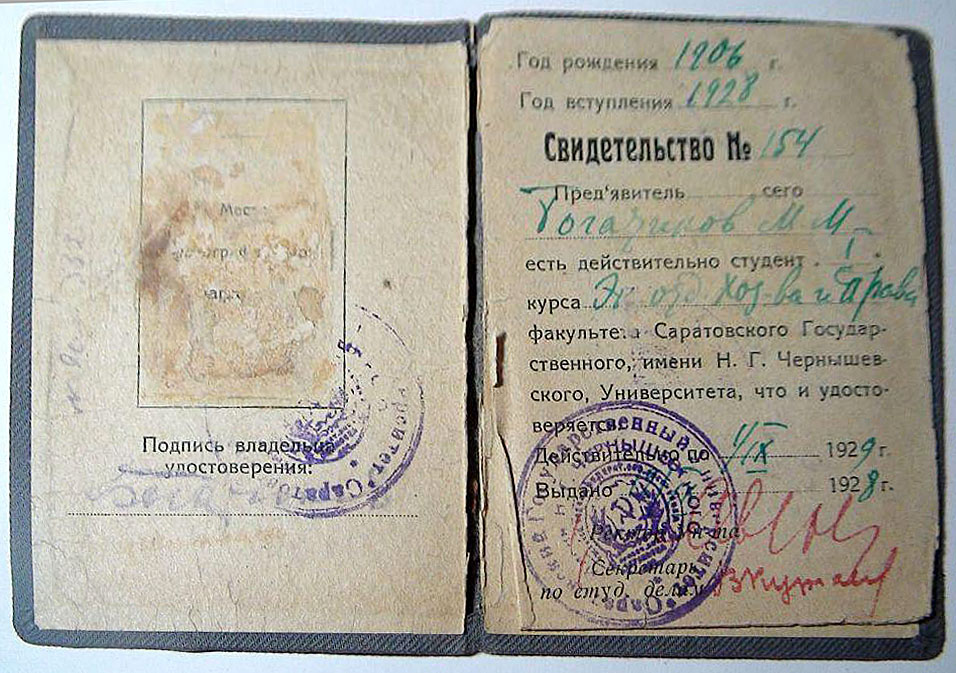 Место
Подпись владельца
удостоверения:
Год рождения 1906 г.
Год вступления 1928 г.
Свидетельство № 154
Пред'явитель сего
М М
есть действительно студент I
курса Эк отд. хоз-ва и Права
факультета Саратовского Государ-
ственного, имени Н. Г. Чернышев-
ского, Университета, что и удосто-
веряется.
Действительно по 1/IX 1929 г.
Выдано 1928 г.
Ректор Ун-та
Секретарь
по студ. делам